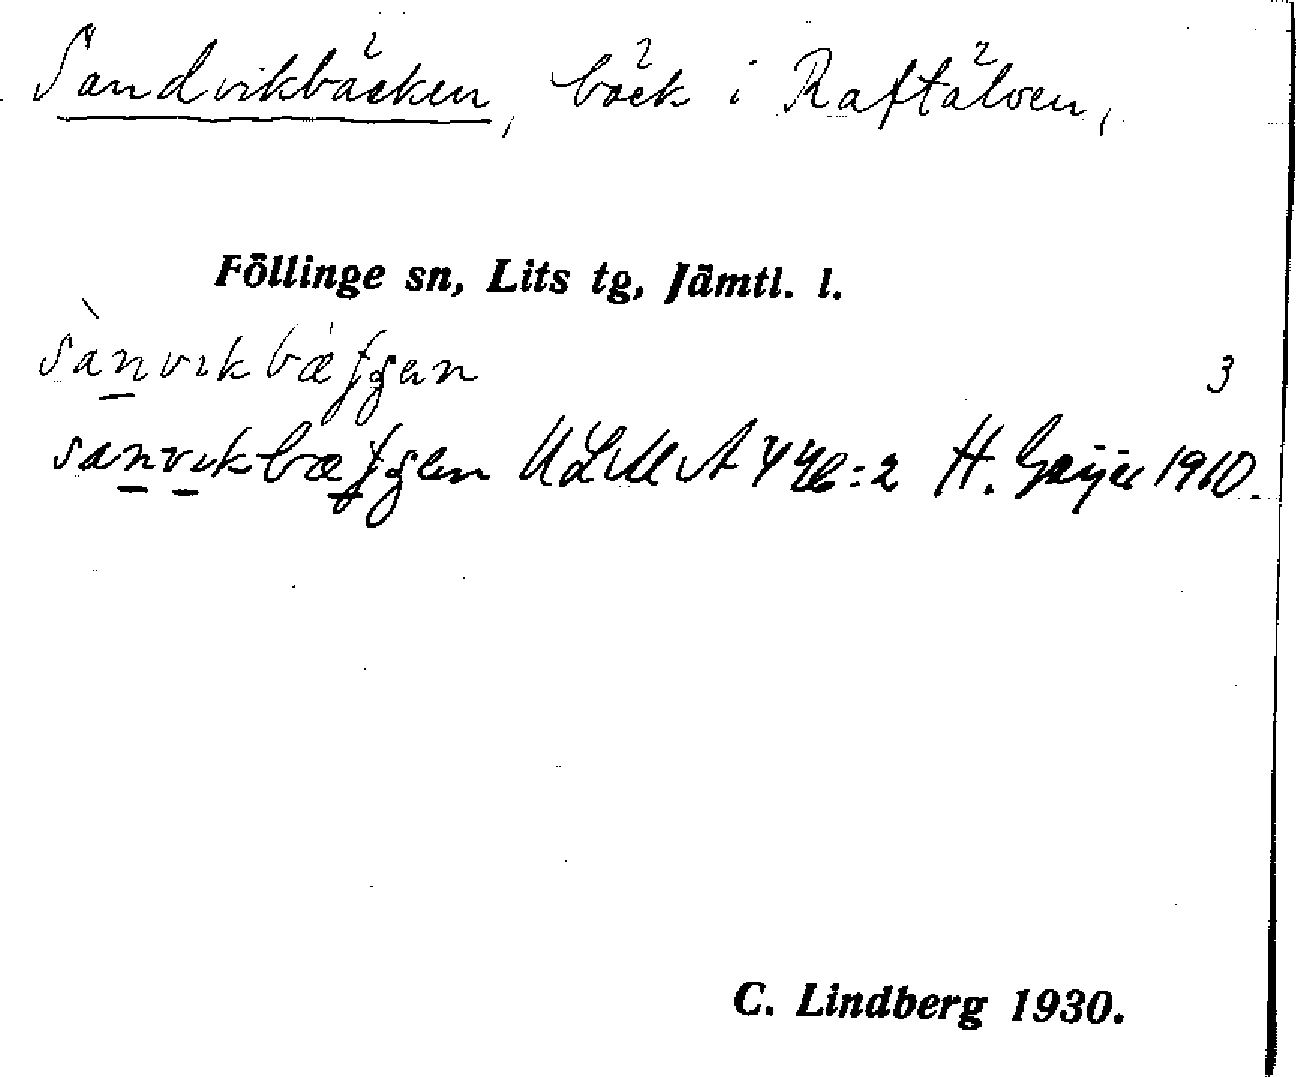 Sandvikbäcken, bäck i Raftälven,
Föllinge sn, Lits tg, Jämtl. l.
sànvikbæʃʃen 3
sanvikbæʃʃen ULMA 446:2 H. Geijer 1910.
C. Lindberg 1930.